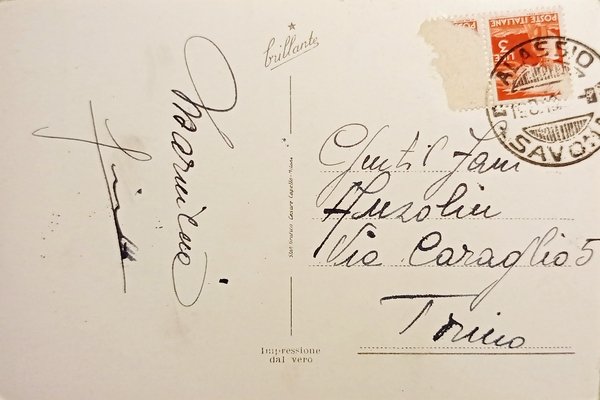 brillante
Stab. Grafico Cesare Capello - Milano
Impressione
dal vero
POSTE ITALIANE
3
LIRE
ALASSIO
SAVONA
Gentil Fam
Anzolin
Via Caraglio 5
Torino